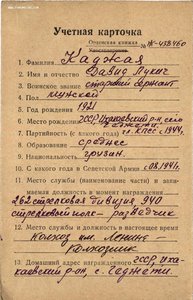 Учетная карточка
Орденская книжка № Ж-438460
1. Фамилия Каджая
2. Имя и отчество Давид Лукич
3. Воинское звание старший сержант
4. Пол мужской
5. Год рождения 1921
6. Место рождения ГССР р-н село
7. Партийность (с какого года) чл. КПСС с 1944г.
8. Образование среднее
9. Национальность грузин.
10. С какого года в Советской Армии с 08.1941г.
11. Место службы (наименование части) и занимаемая должность в момент награждения
262 стрелковая дивизия 940
стрелковый полк - разведчик
12. Место службы и занимаемая должность в настоящее время
Колхоз им. Ленина -
Колхозник
13. Домашний адрес награжденного ГССР, Цха-
каевский р-он с.